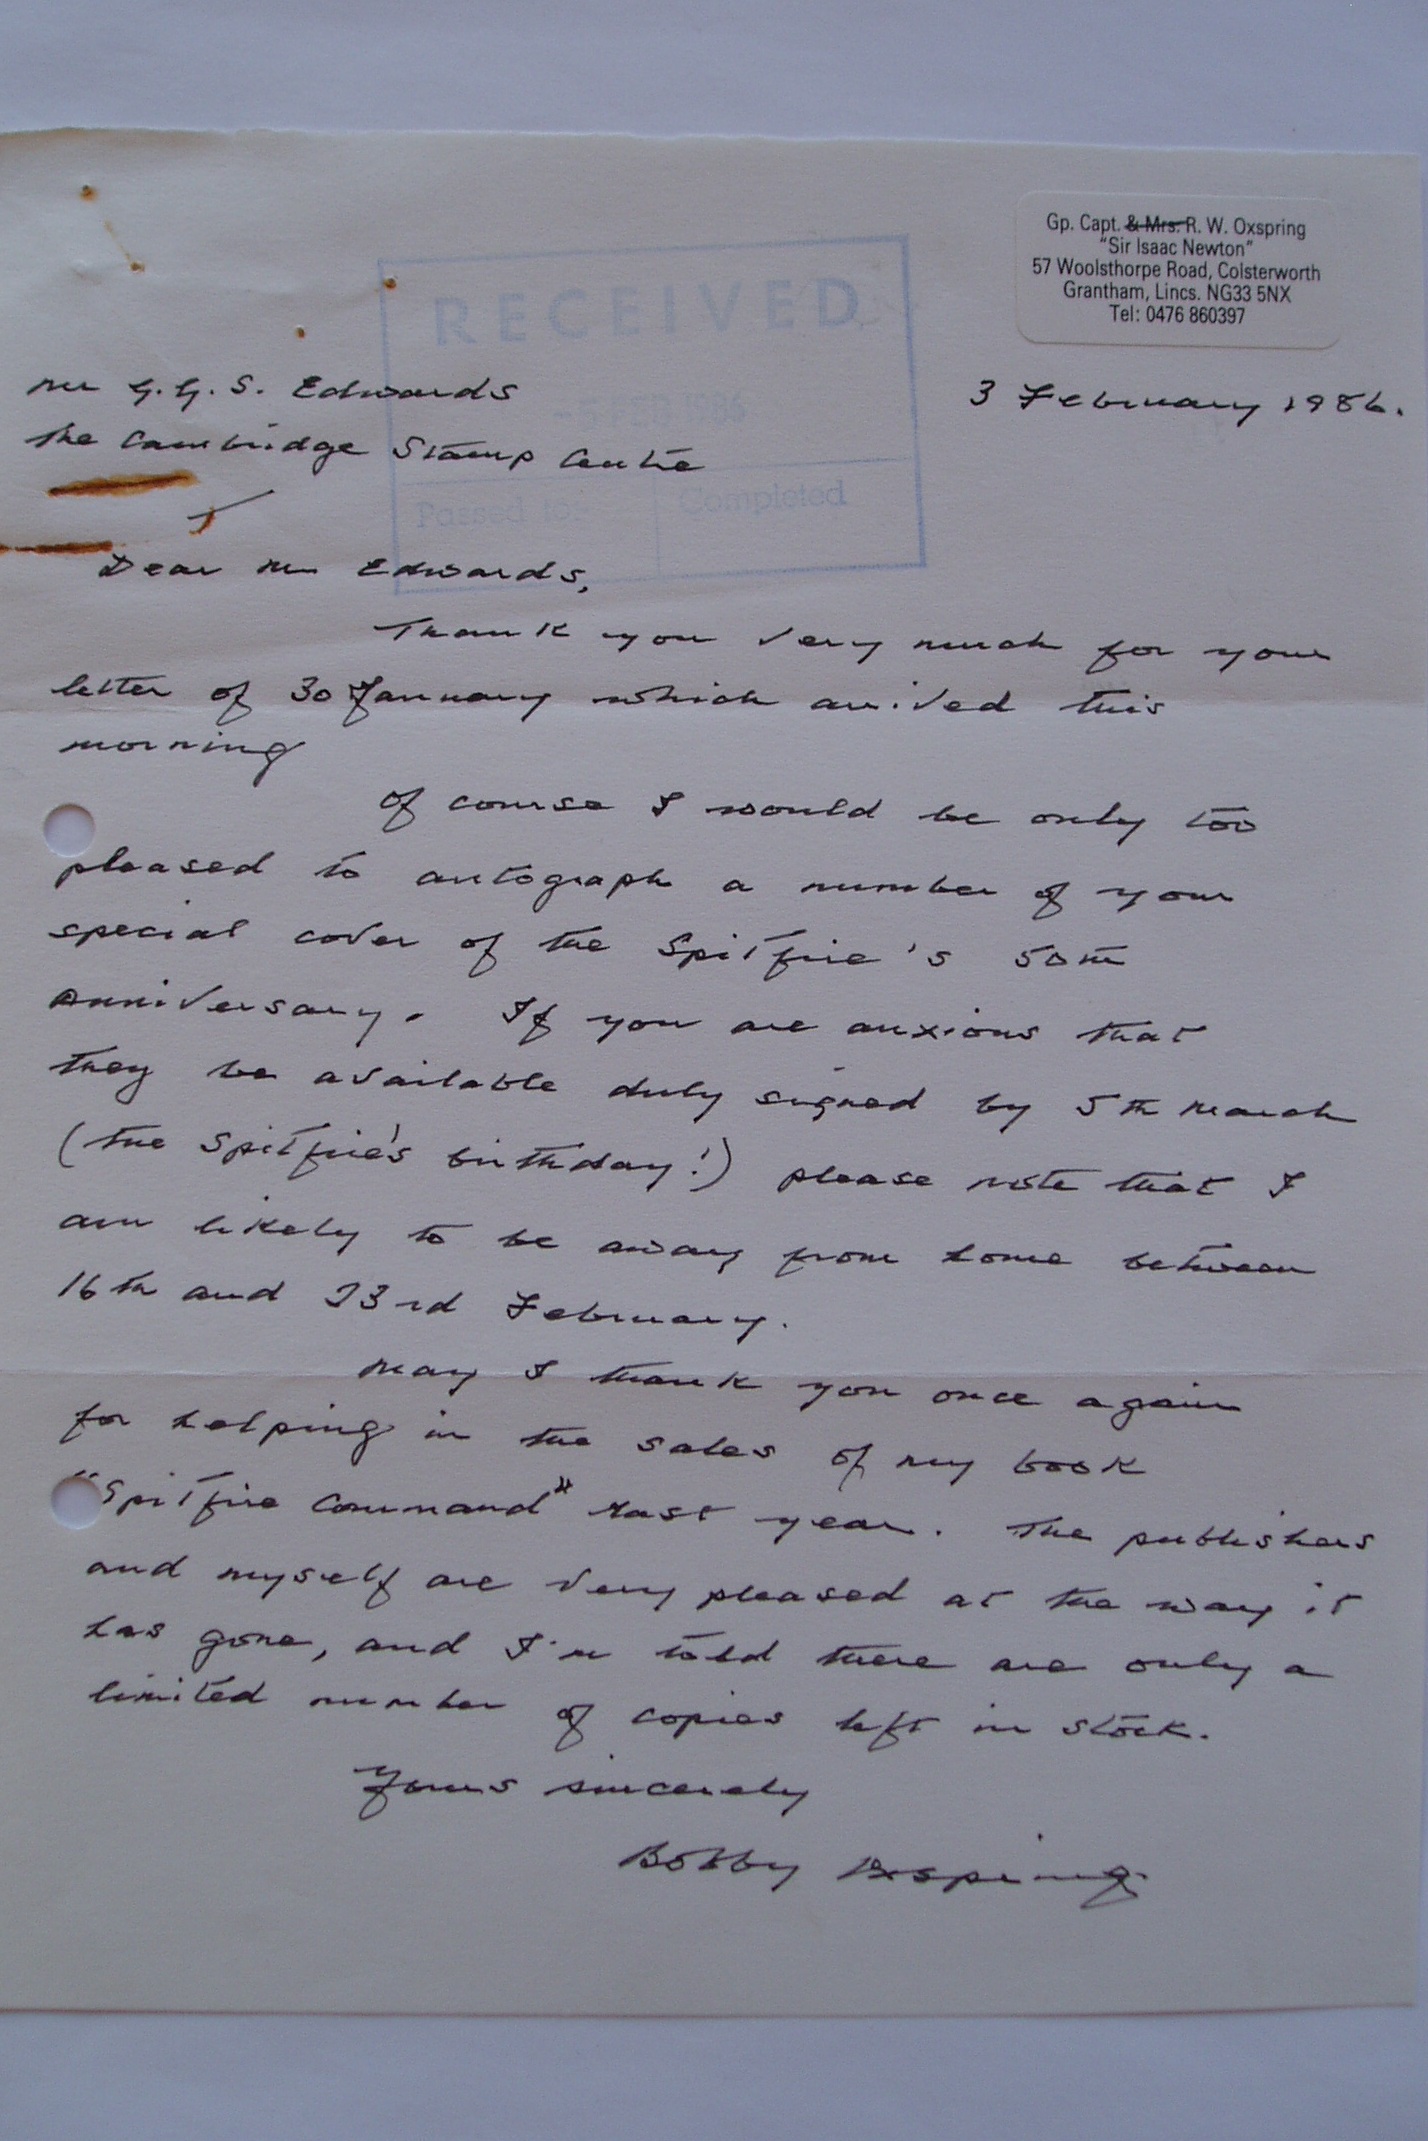 Gp. Capt. & Mrs. R. W. Oxspring
"Sir Isaac Newton"
57 Woolsthorpe Road, Colsterworth
Grantham, Lincs. NG33 5NX
Tel: 0476 860397
RECEIVED
-5 FEB 1986
Passed to:-
Completed
Mr G.G.S. Edwards
3 February 1986.
The Cambridge Stamp Centre
Dear Mr Edwards,
Thank you very much for your
letter of 30 January which arrived this
morning
Of course I would be only too
pleased to autograph a number of your
special cover of the Spitfire's 50th
anniversary. If you are anxious that
they be available duly signed by 5th March
(the Spitfire's birthday!) please note that I
am likely to be away from home between
16th and 23rd February.
May I thank you once again
for helping in the sales of my book
"Spitfire Command" last year. The publishers
and myself are very pleased at the way it
has gone, and I'm told there are only a
limited number of copies left in stock.
Yours sincerely
Bobby Oxspring